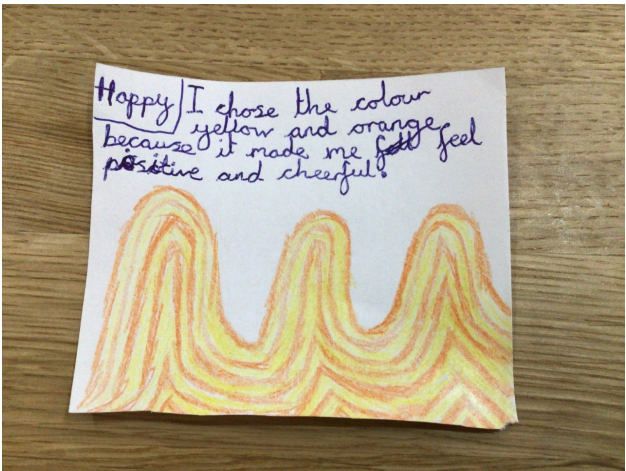 Happy I chose the colour
yellow and orange
because it made me feel
positive and cheerful.